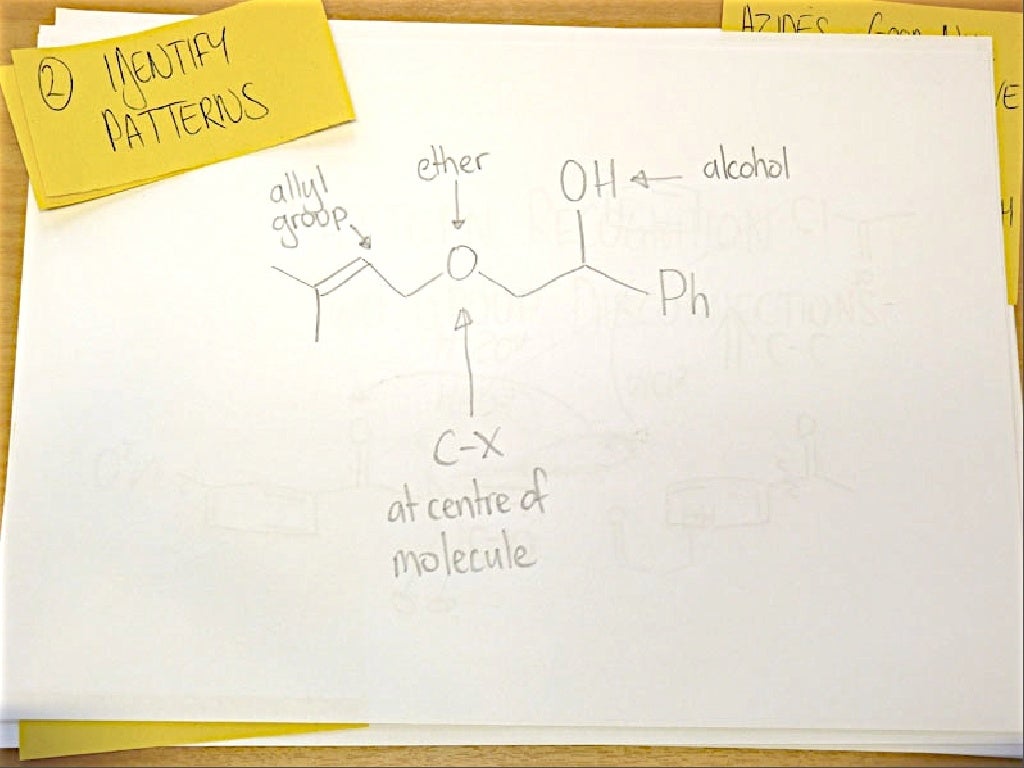 ② IDENTIFY
PATTERNS
AZIDES
allyl
group
ether
OH
alcohol
O
Ph
C-X
at centre of
molecule